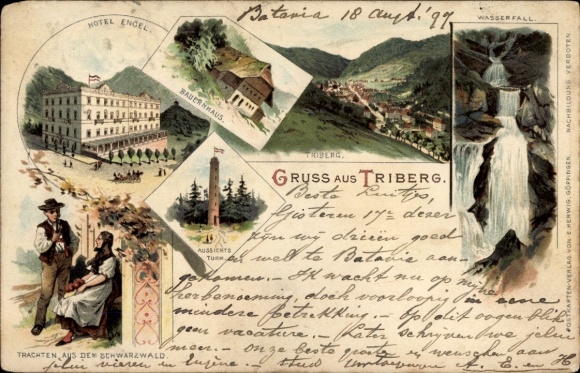 Batavia 18 Augt. '97
HOTEL ENGEL.
BAUERNHAUS.
TRIBERG.
WASSERFALL.
GRUSS AUS TRIBERG.
AUSSICHTS
TURM.
TRACHTEN AUS DEM SCHWARZWALD.
POSTKARTEN-VERLAG VON E. HERWIG, GÖPPINGEN. NACHBILDUNG VERBOTEN.
Beste
Gisteren 17en dezer
zijn wij drieën goed
en wel te Batavia aan-
gekomen. - Ik wacht nu op mijne
herbenoeming, doch voorloopig in eene
mindere betrekking. - Op dit oogenblik
geen vacature. - Later schrijven we
men. - onze beste groete en wenschen aan
en Eugène. - A. E. en H